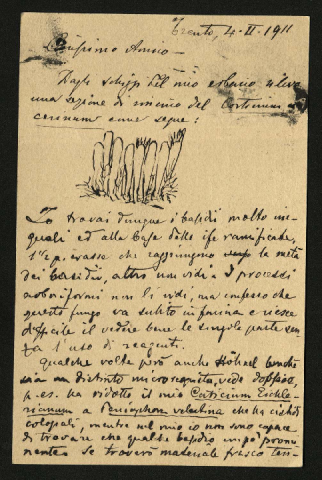 Trento, 4-II-1911
Carissimo Amico —
Dagli schizzi del mio erbario rilevo
una sezione di imenio del Corticium
cerinum come segue:
Io trovai dunque i basidi molto ine-
guali ed alla base delle ife ramificate,
che raggiungono la metà
dei basidii, altro non vidi. I processi
arboriformi non li vidi, ma confesso che
questo fungo va subito in farina e riesce
difficile il vedere bene le singole parti sen-
za l'uso di reagenti.
Qualche volta però anche Höhnel benchè
sia un distinto microscopista, vede doppio,
p. es. ha ridotto il mio Corticium Eichle-
rianum a Peniophora velutina che ha cistidi
colossali, mentre nel mio io non sono capace
di trovare che qualche basidio un po' promi-
nente. Se troverò materiale fresco